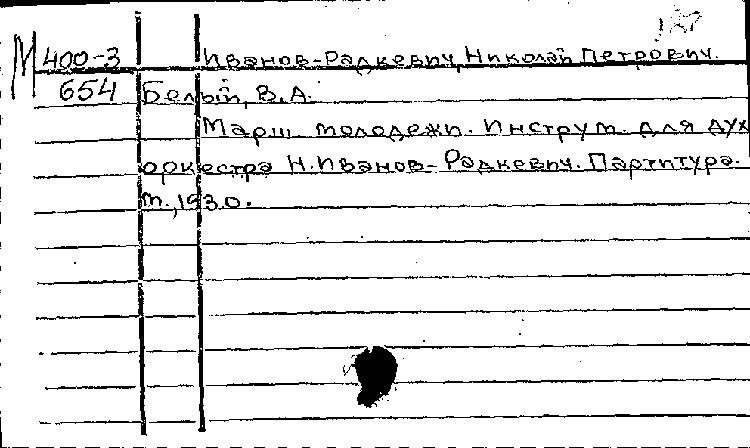 М 400-3 Иванов-Радкевич, Николай Петрович.
654 Белый, В.А.
Марш молодежи. Инструм. для дух
оркестра Н.Иванов-Радкевич. Партитура.
м., 1930.